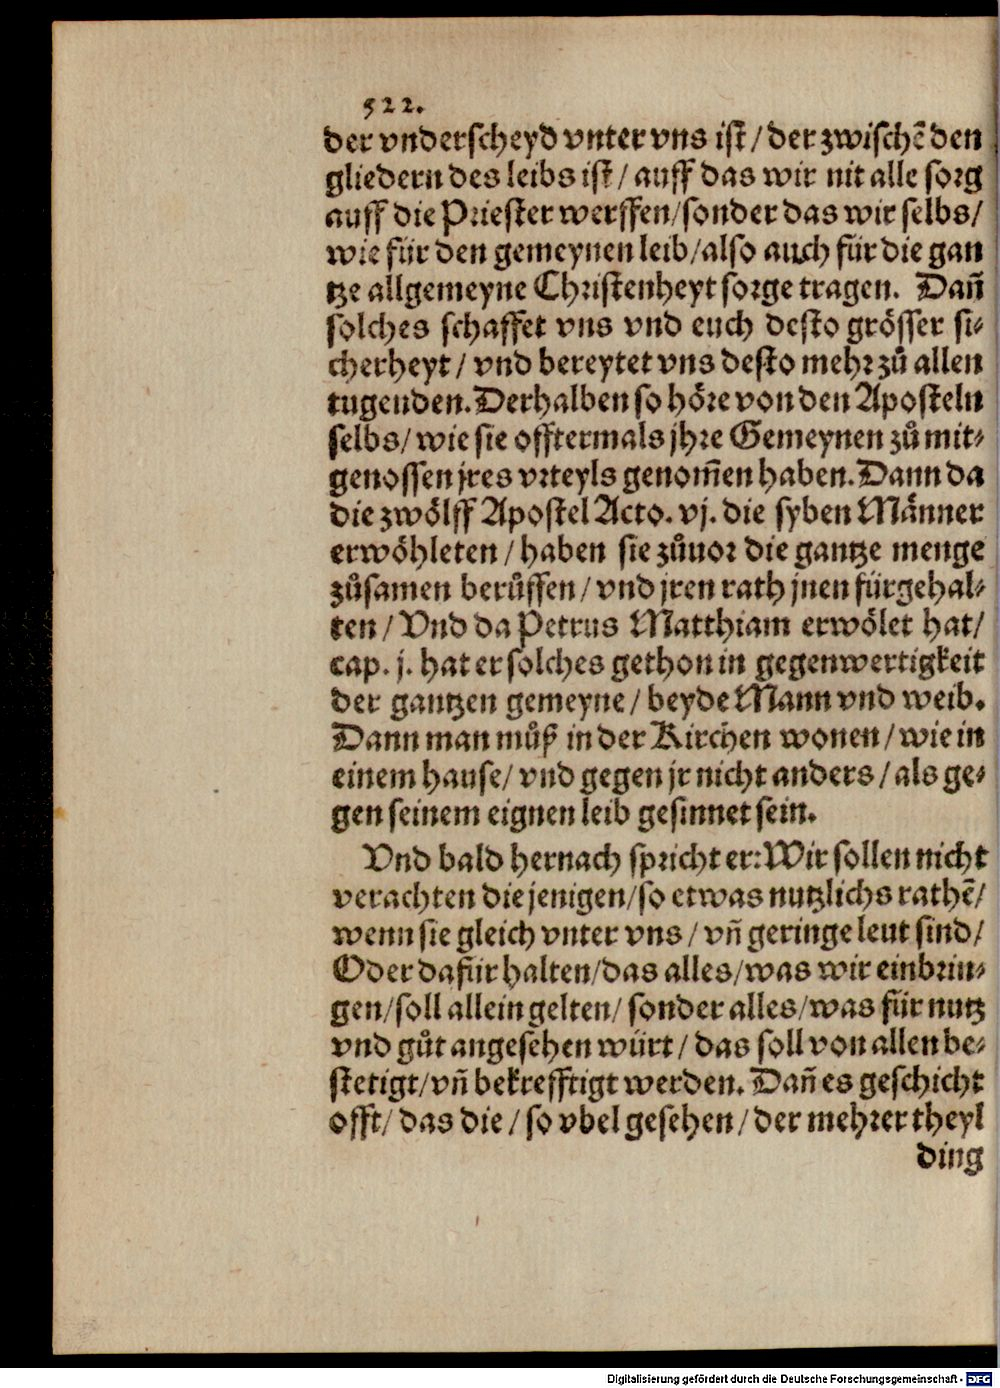 522.
der vnderscheyd vnter vns ist / der zwischē den
gliedern des leibs ist / auff das wir nit alle sorg
auff die Priester werffen/sonder das wir selbs/
wie für den gemeynen leib/also auch für die gan
tze allgemeyne Christenheyt sorge tragen. Dañ
solches schaffet vns vnd euch desto grösser si-
cherheyt / vnd bereytet vns desto mehr zů allen
tugenden. Derhalben so höre von den Aposteln
selbs/ wie sie offtermals jhre Gemeynen zů mit-
genossen jres vrteyls genom̄en haben. Dann da
die zwölff Apostel Acto. vj. die syben Männer
erwöhleten / haben sie zůuor die gantze menge
zůsamen berůffen / vnd jren rath jnen fürgehal-
ten / Vnd da Petrus Matthiam erwölet hat/
cap. j. hat er solches gethon in gegenwertigkeit
der gantzen gemeyne / beyde Mann vnd weib.
Dann man můß in der Kirchen wonen / wie in
einem hause/ vnd gegen jr nicht anders / als ge-
gen seinem eignen leib gesinnet sein.
Vnd bald hernach spricht er: Wir sollen nicht
verachten die jenigen/so etwas nutzlichs rathē/
wenn sie gleich vnter vns / vñ geringe leut sind/
Oder dafür halten/das alles/was wir einbrin-
gen/soll allein gelten/ sonder alles/was für nutz
vnd gůt angesehen würt / das soll von allen be-
stetigt/vñ bekrefftigt werden. Dañ es geschicht
offt/ das die / so vbel gesehen / der mehrer theyl
ding
Digitalisierung gefördert durch die Deutsche Forschungsgemeinschaft - DFG